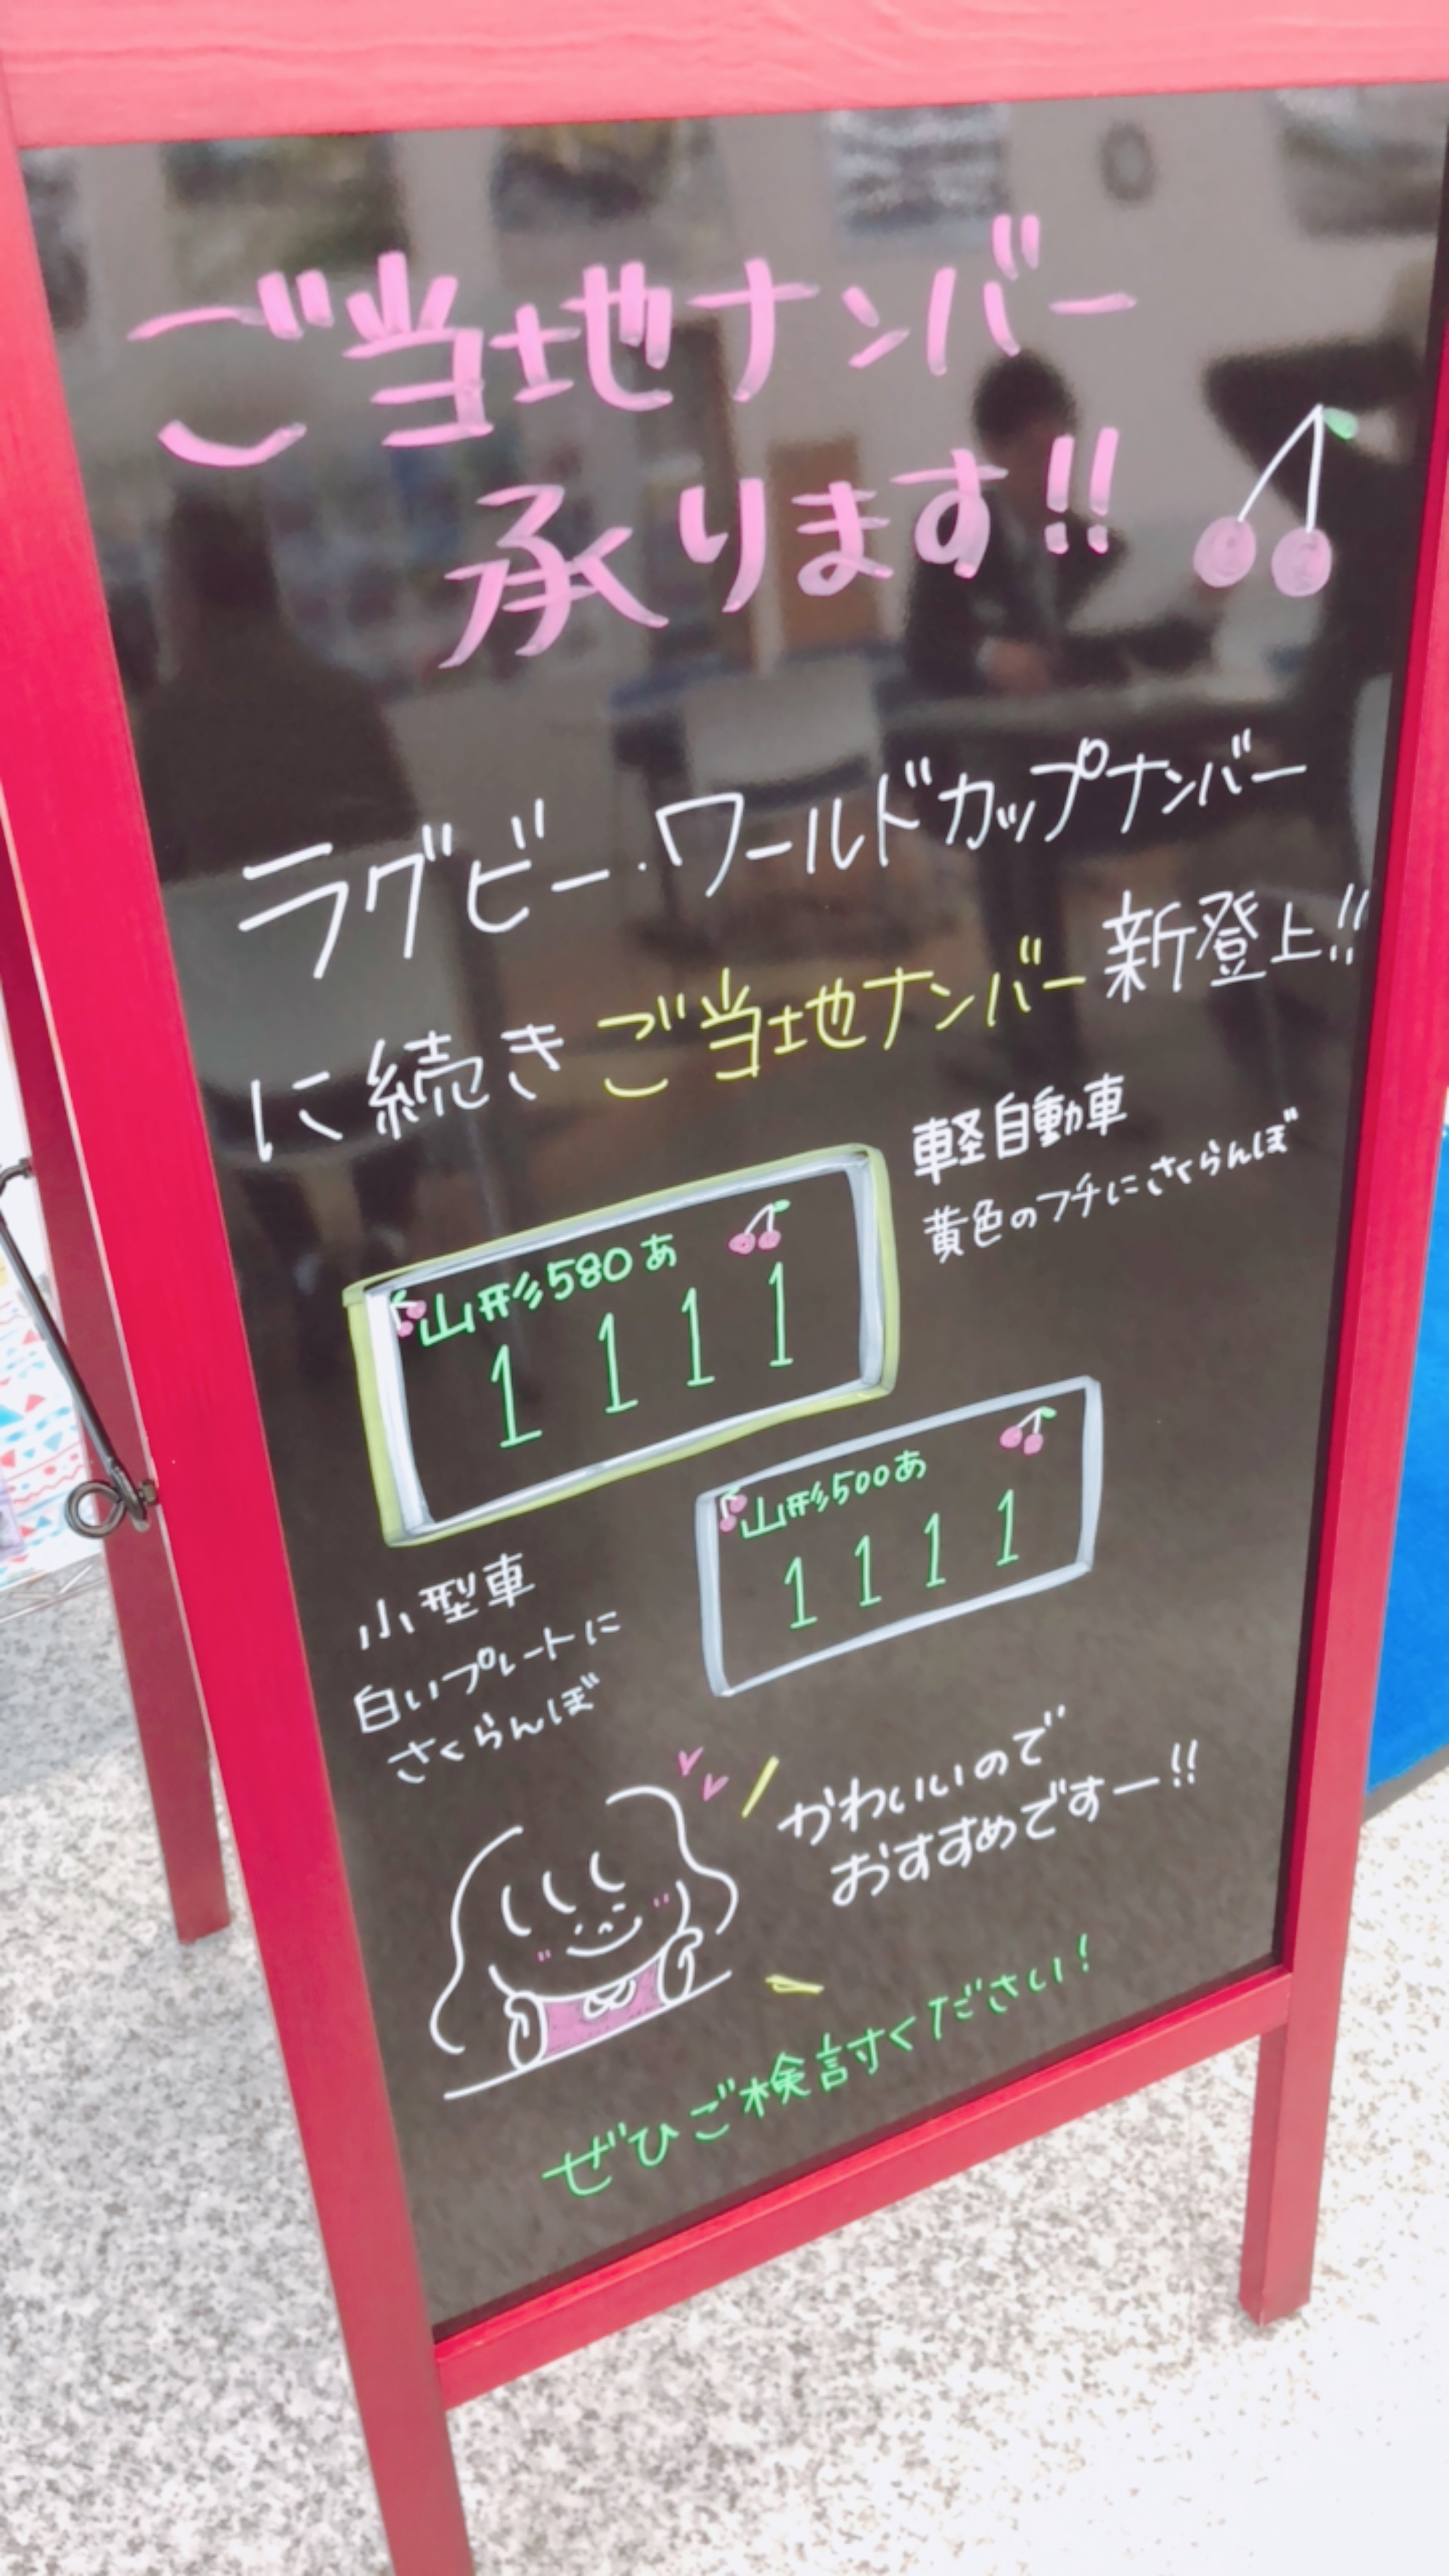 ご当地ナンバー
承ります!!
ラグビー・ワールドカップナンバー
に続きご当地ナンバー新登上!!
軽自動車
黄色のフチにさくらんぼ
山形580あ
1111
山形500あ
1111
小型車
白いプレートに
さくらんぼ
かわいいので
おすすめですー!!
ぜひご検討ください!